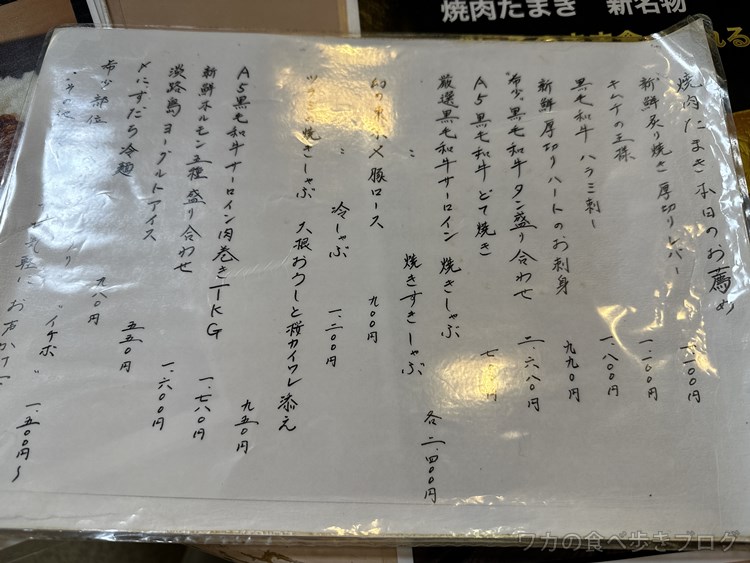 焼肉たまき 新名物
焼肉たまき 本日のお薦め
新鮮炙り焼き 厚切りレバー 一.一00円
キムチの王様 一.二00円
黒毛和牛 ハラミ刺し 一.八00円
新鮮厚切りハートのお刺身 九九0円
"希少"黒毛和牛タン盛り合わせ 二.六八0円
A5黒毛和牛 どて焼き
厳選黒毛和牛サーロイン 焼きしゃぶ
〃 焼きすきしゃぶ 各二.四00円
豚ロース 九00円
〃 冷しゃぶ 一.二00円
焼きしゃぶ 大根おろしと桜カイワレ添え
A5黒毛和牛サーロイン肉巻きTKG 九五0円
新鮮ホルモン五種盛り合わせ 一.七八0円
淡路島ヨーグルトアイス 一.六00円
〆にすだち冷麺 五五0円
希少部位 九八0円
"イチボ" 一.五00円〜
ワカの食べ歩きブログ